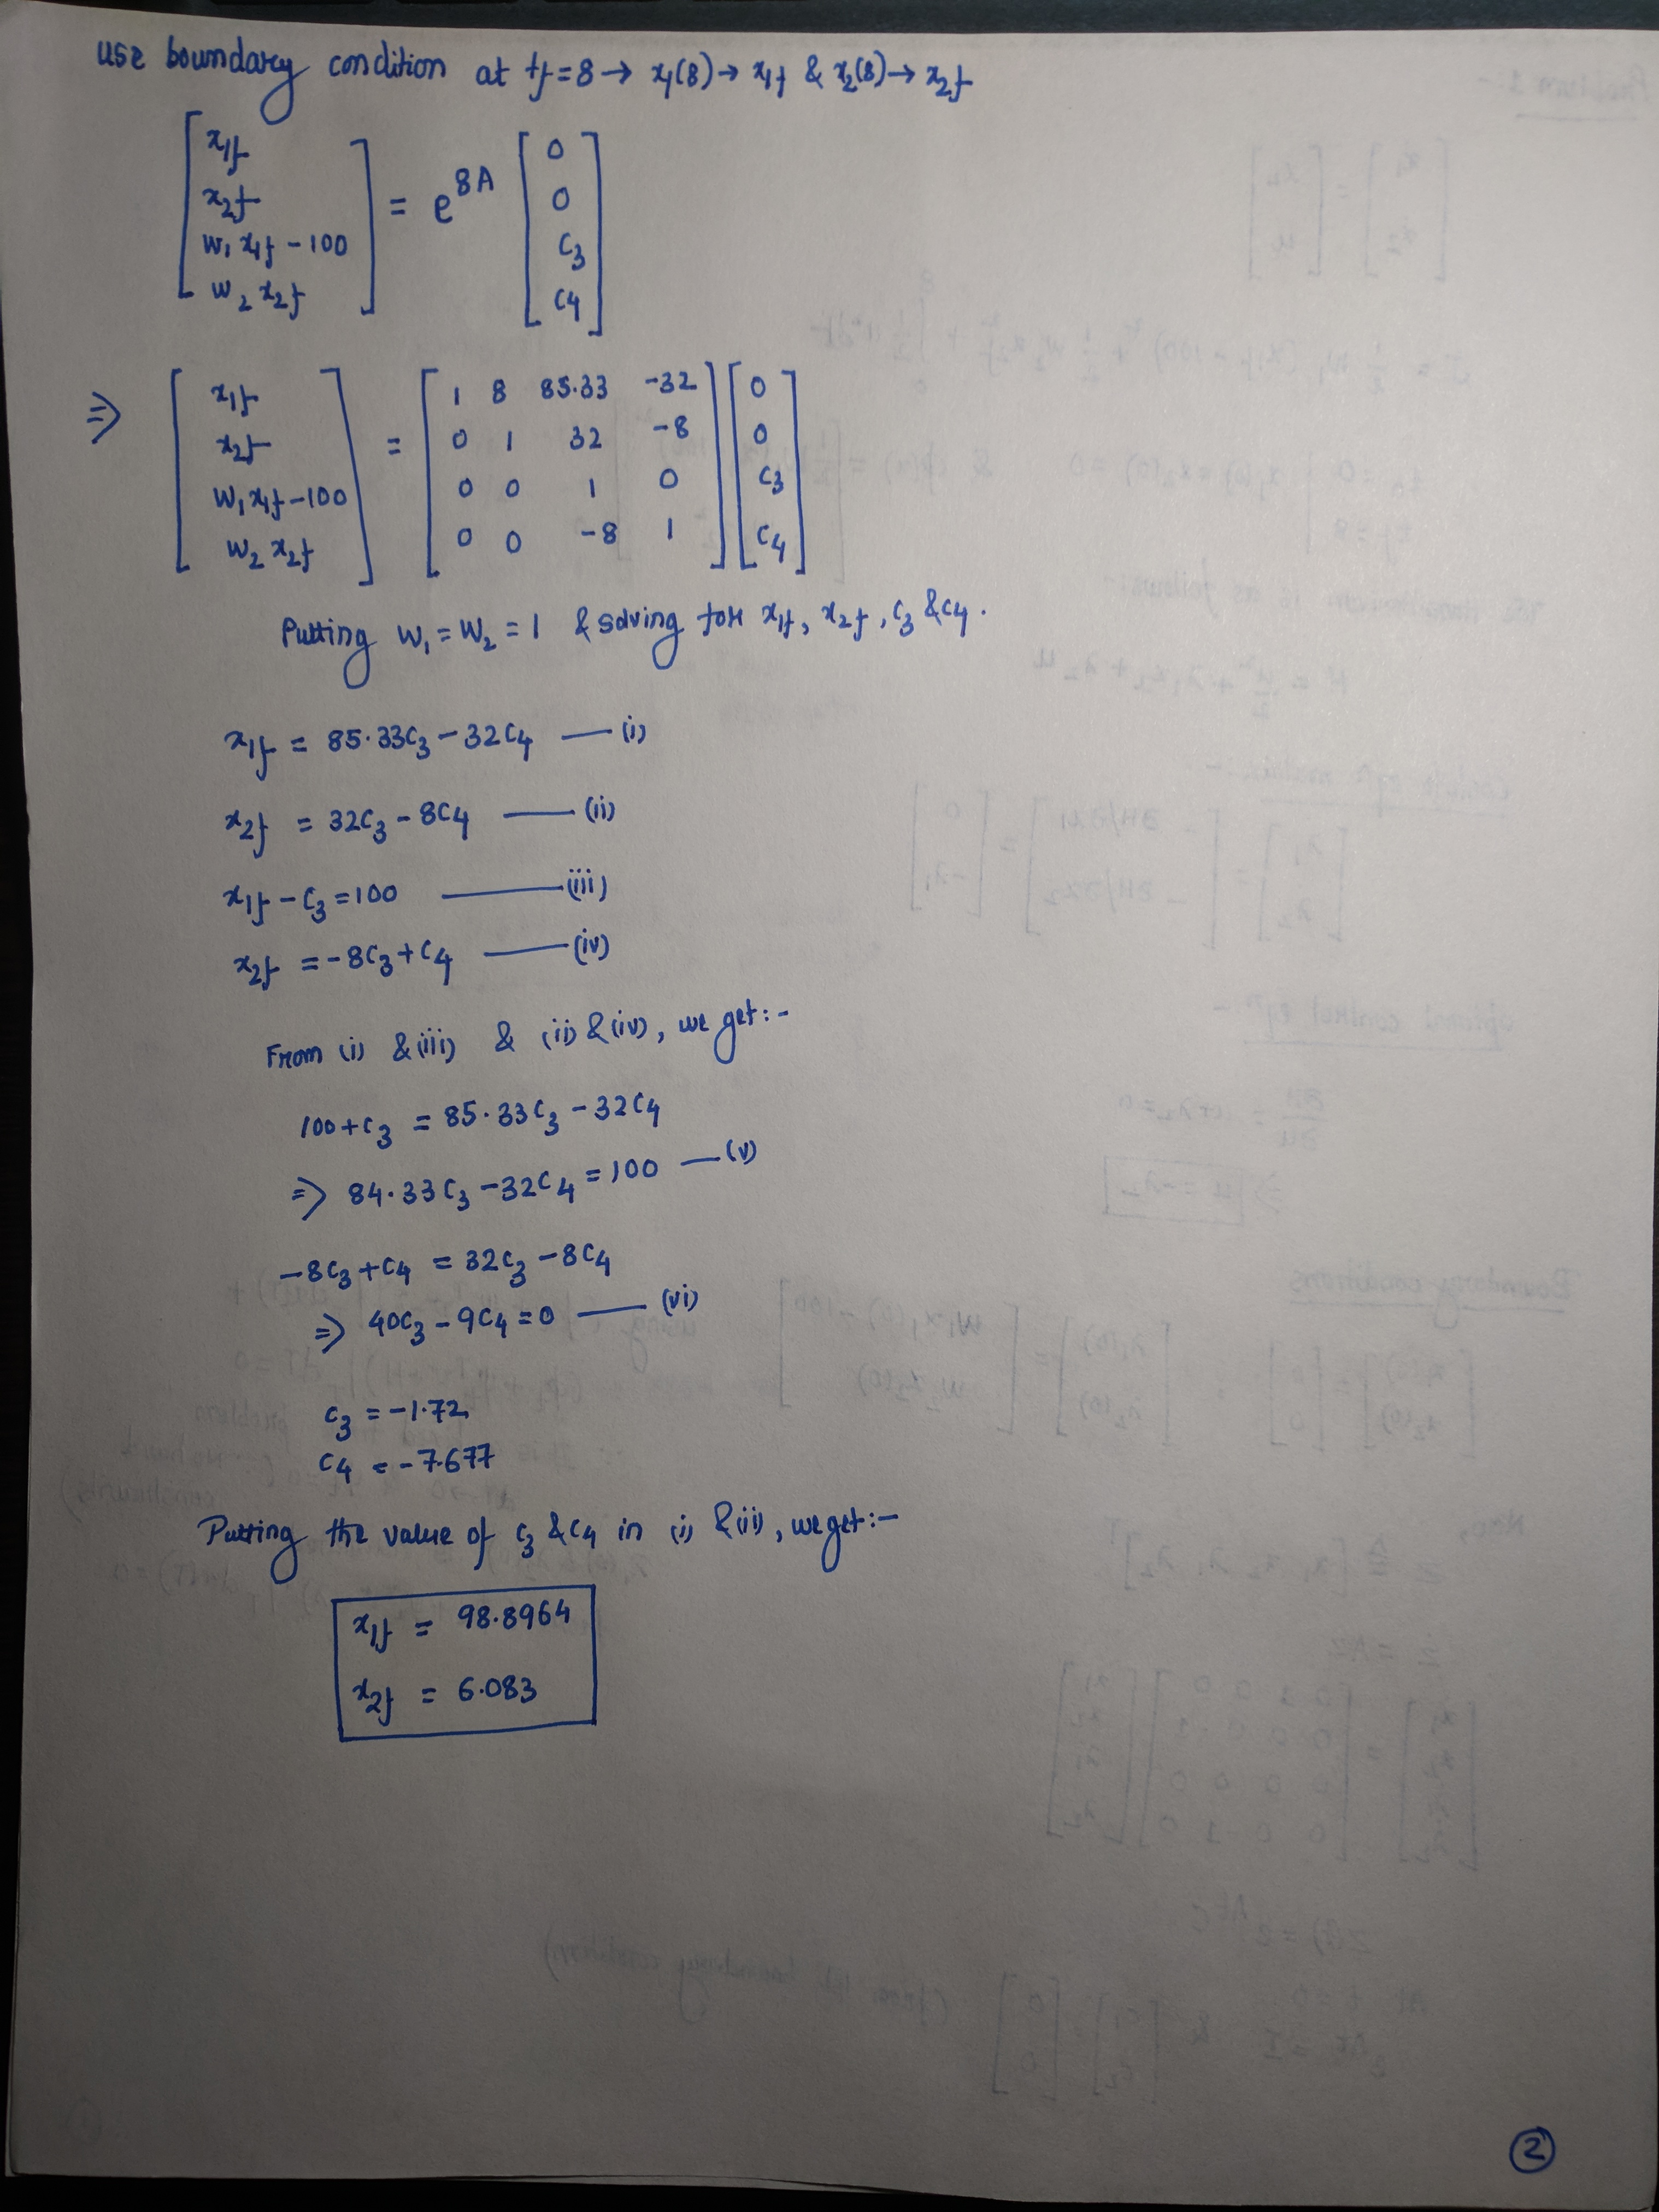 use boundary condition at tf=8 → x1(8) → x1f & x2(8) → x2f
[x1f
x2f
w1 x1f - 100
w2 x2f] = e^8A [0
0
c3
c4]
⇒ [x1f
x2f
w1 x1f - 100
w2 x2f] = [1 8 85.33 -32
0 1 32 -8
0 0 1 0
0 0 -8 1] [0
0
c3
c4]
Putting w1 = w2 = 1 & solving for x1f, x2f, c3 & c4.
x1f = 85.33c3 - 32c4 — (i)
x2f = 32c3 - 8c4 — (ii)
x1f - c3 = 100 — (iii)
x2f = -8c3 + c4 — (iv)
From (i) & (iii) & (ii) & (iv), we get:-
100 + c3 = 85.33c3 - 32c4
⇒ 84.33c3 - 32c4 = 100 — (v)
-8c3 + c4 = 32c3 - 8c4
⇒ 40c3 - 9c4 = 0 — (vi)
c3 = -1.72
c4 = -7.677
Putting the value of c3 & c4 in (i) & (ii), we get:-
x1f = 98.8964
x2f = 6.083
2